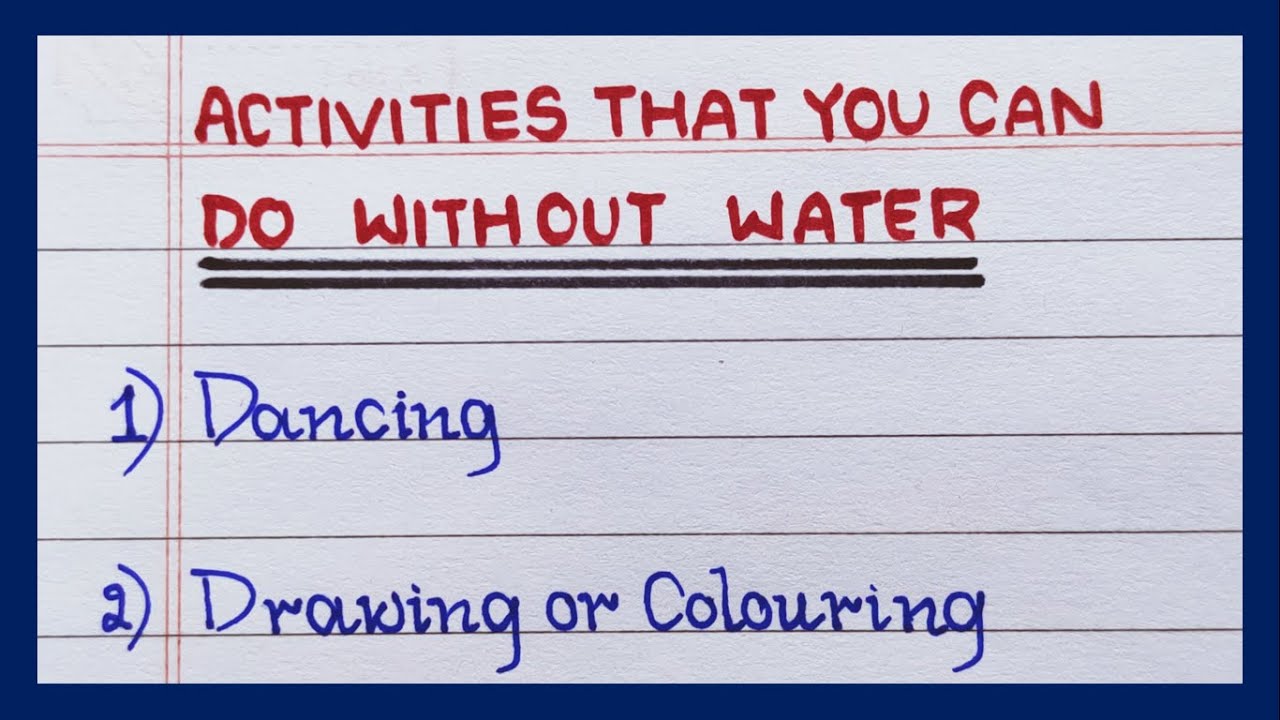 ACTIVITIES THAT YOU CAN
DO WITHOUT WATER
1) Dancing
2) Drawing or Colouring